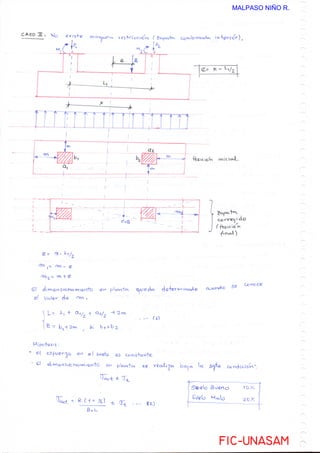 MALPASO NIÑO R.
CASO II: No existe ninguna restricción (zapata combinada interior),
M1 P1
M2 P2
e R
e = x - L1/2
L1
x
m
m b1 a1
b2 a2 m
m
Posición inicial
m1
c=G
m2
Zapata corregida (Posición final)
e = x - L1/2
m1 = m - e
m2 = m + e
El dimensionamiento en planta queda determinado cuando se conoce
el valor de m:
L = L1 + a1/2 + a2/2 + 2m
B = b1 + 2m, si b1 > b2
... (1)
Hipótesis:
* El esfuerzo en el suelo es constante
* El dimensionamiento en planta se realiza bajo la sgte condición:
σact ≤ σt
σact = R(1+%)/B×L ≤ σt ... (2)
Suelo Bueno 10%
Suelo Malo 20%
FIC-UNASAM